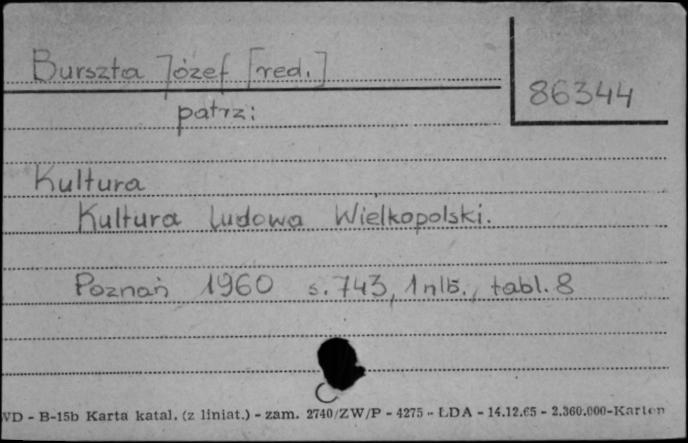 Burszta Józef [red.]
86344
patrz:
Kultura
Kultura ludowa Wielkopolski.
Poznań 1960 s. 743, 1 nlb., tabl. 8
WD - B-15b Karta katal. (z liniat.) - zam. 2740/ZW/P - 4275 - LDA - 14.12.65 - 2.360.000-Karton